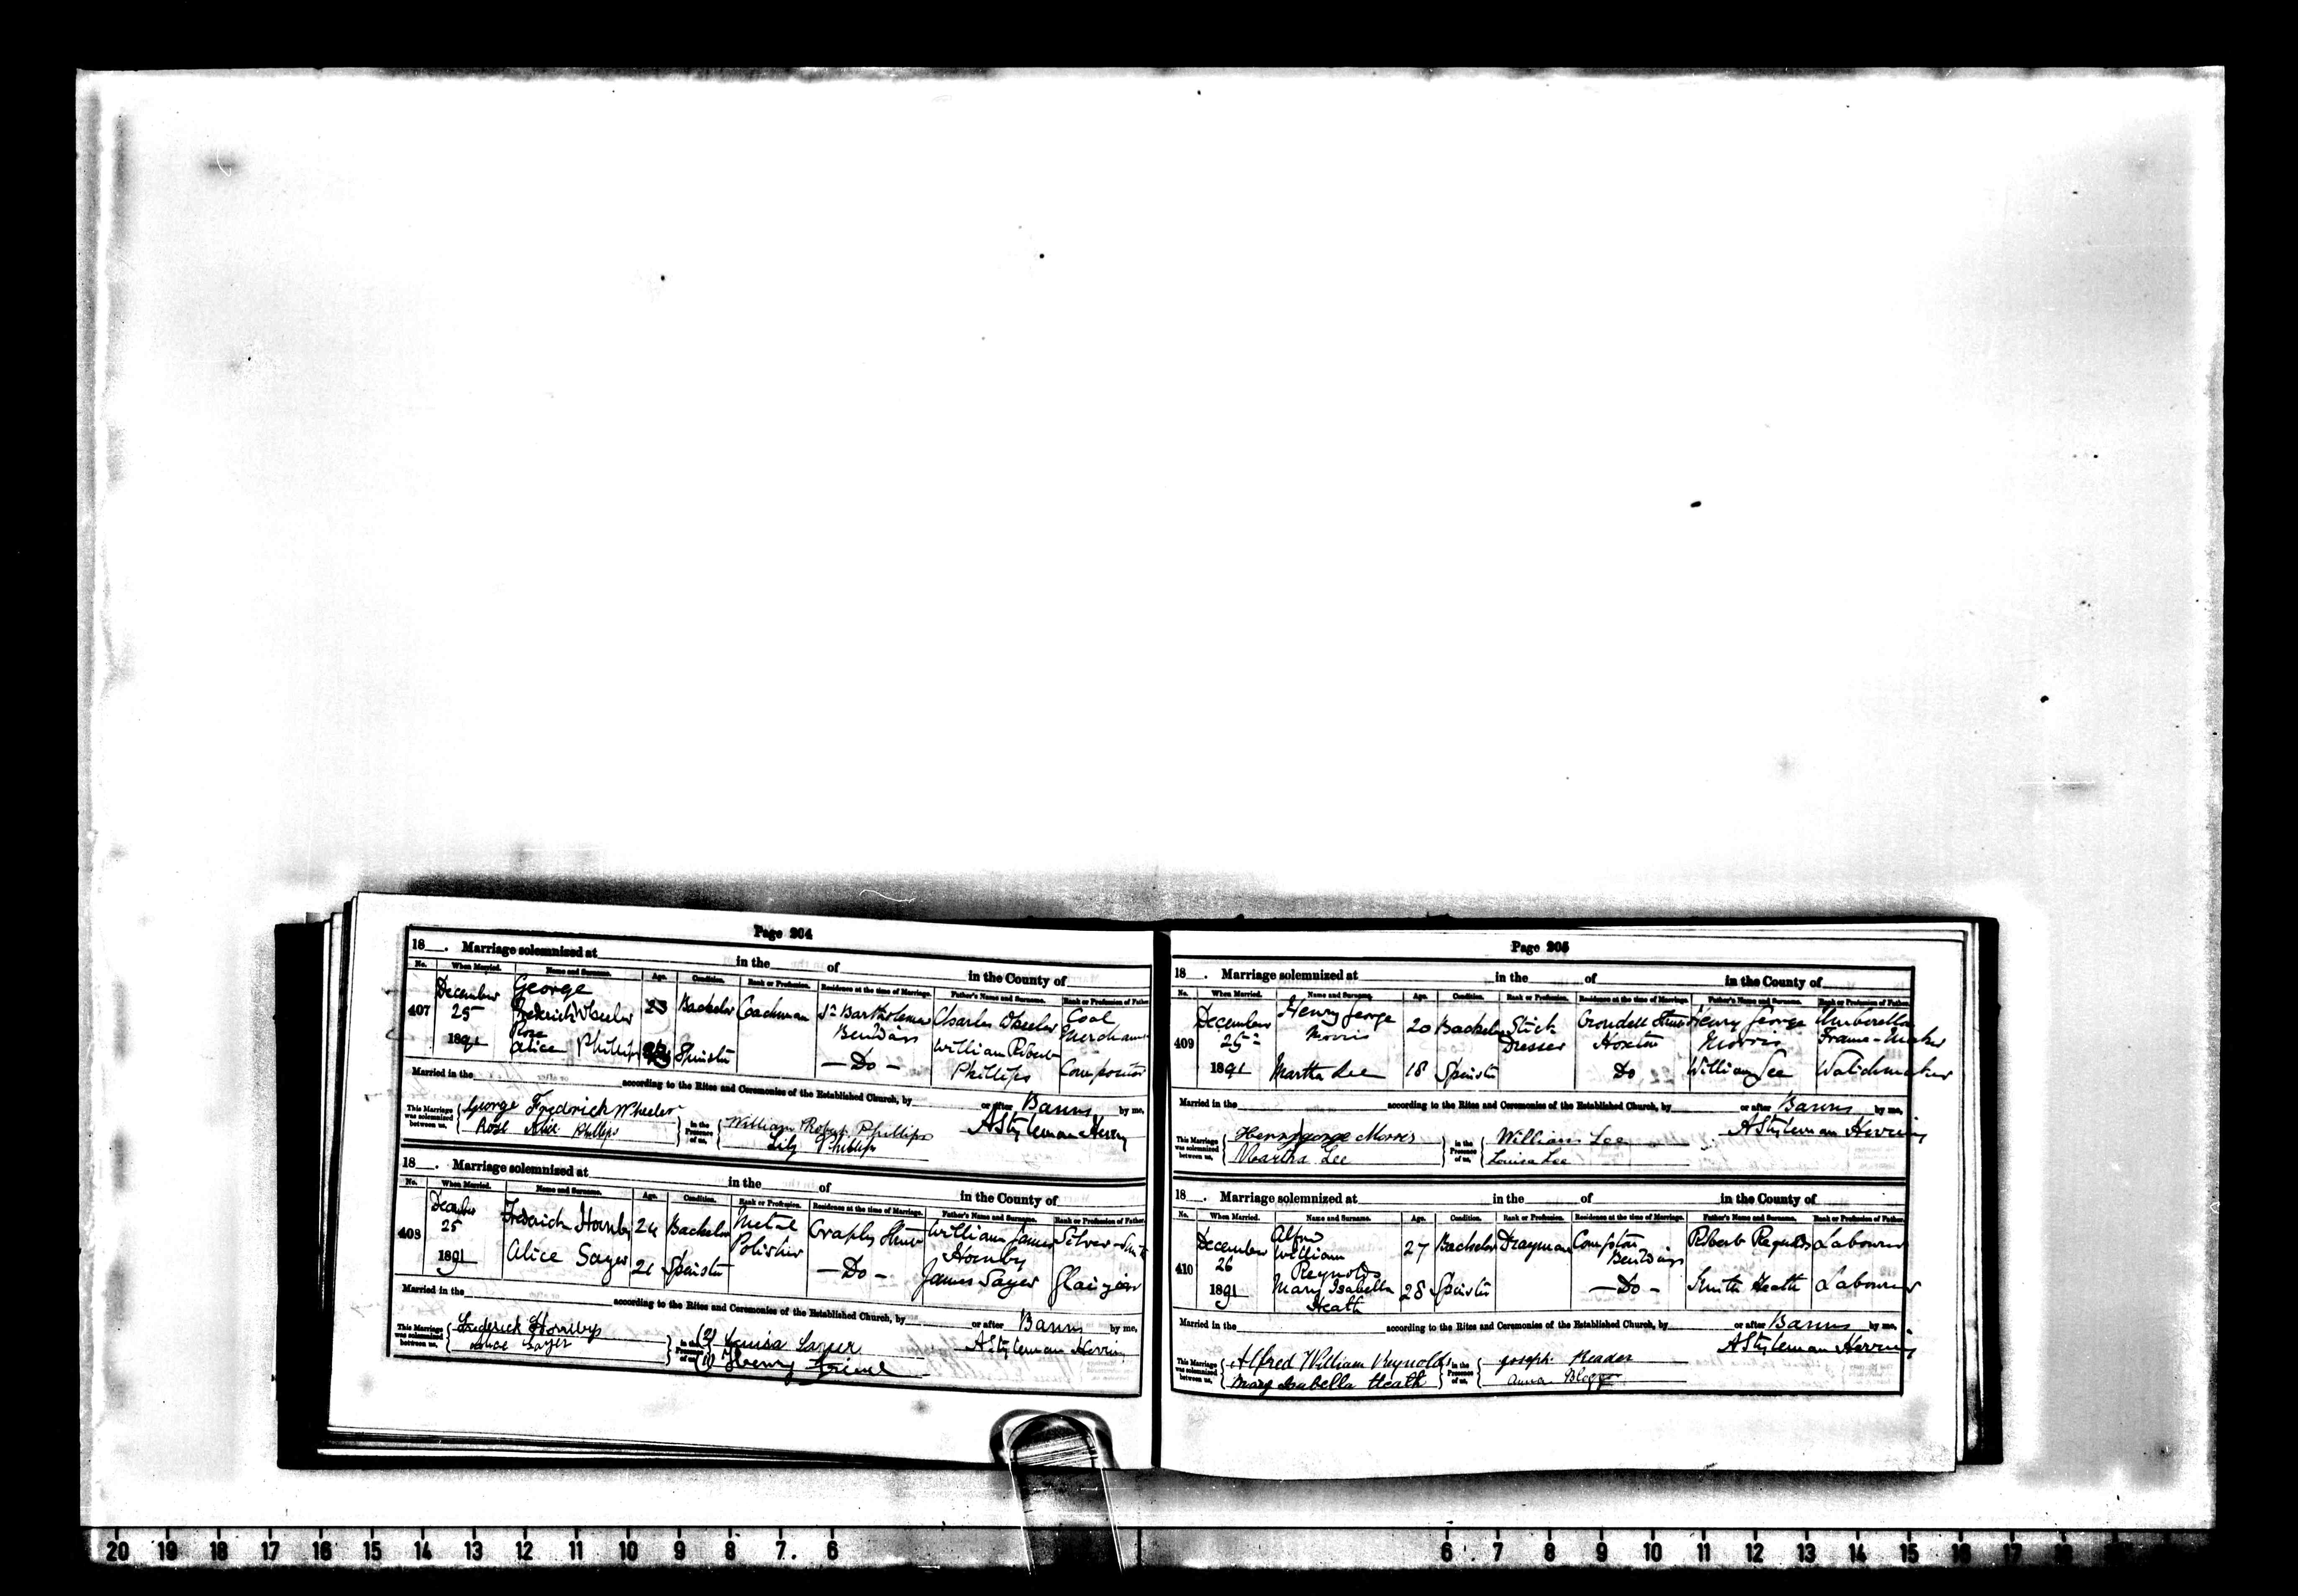 Page 204
18 . Marriage solemnized at in the of in the County of
No. When Married. Name and Surname. Age. Condition. Rank or Profession. Residence at the time of Marriage. Father's Name and Surname. Rank or Profession of Father.
407 December 25 1891 George Frederick Wheeler 23 Bachelor Coachman St Bartholomew Buildings Charles Wheeler Coal Merchant
Rose Alice Phillips Spinster — Do — William Robert Phillips Compositor
Married in the according to the Rites and Ceremonies of the Established Church, by or after Banns by me,
This Marriage was solemnized between us, George Frederick Wheeler in the Presence of us, William Robert Phillips A Styleman Herring
Rose Alice Phillips Lily Phillips
18 . Marriage solemnized at in the of in the County of
No. When Married. Name and Surname. Age. Condition. Rank or Profession. Residence at the time of Marriage. Father's Name and Surname. Rank or Profession of Father.
408 December 25 1891 Frederick Hornby Bachelor Metal Polisher William James Hornby Silver-Smith
Alice Sayer 21 Spinster — Do — James Sayer Glazier
Married in the according to the Rites and Ceremonies of the Established Church, by or after Banns by me,
This Marriage was solemnized between us, Frederick Hornby in the Presence of us, (2) Louisa Sayer A Styleman Herring
Alice Sayer (1) Henry
Page 205
18 . Marriage solemnized at in the of in the County of
No. When Married. Name and Surname. Age. Condition. Rank or Profession. Residence at the time of Marriage. Father's Name and Surname. Rank or Profession of Father.
409 December 25 1891 Henry George Morris 20 Bachelor Stick Dresser Crondall Street Hoxton Henry George Morris Umberella Frame-Maker
Martha Lee 18 Spinster Do William Lee Watchmaker
Married in the according to the Rites and Ceremonies of the Established Church, by or after Banns by me,
This Marriage was solemnized between us, Henry george Morris in the Presence of us, William Lee A Styleman Herring
Martha Lee Louisa Lee
18 . Marriage solemnized at in the of in the County of
No. When Married. Name and Surname. Age. Condition. Rank or Profession. Residence at the time of Marriage. Father's Name and Surname. Rank or Profession of Father.
410 December 26 1891 Alfred William Reynolds 27 Bachelor Drayman Compton Buildings Robert Reynolds Labourer
Mary Isabella Heath 28 Spinster — Do — Smith Heath Labourer
Married in the according to the Rites and Ceremonies of the Established Church, by or after Banns by me,
This Marriage was solemnized between us, Alfred William Reynolds in the Presence of us, Joseph Reader A Styleman Herring
Mary Isabella Heath Anna
20 19 18 17 16 15 14 13 12 11 10 9 8 7 6 6 7 8 9 10 11 12 13 14 15 16 17 18